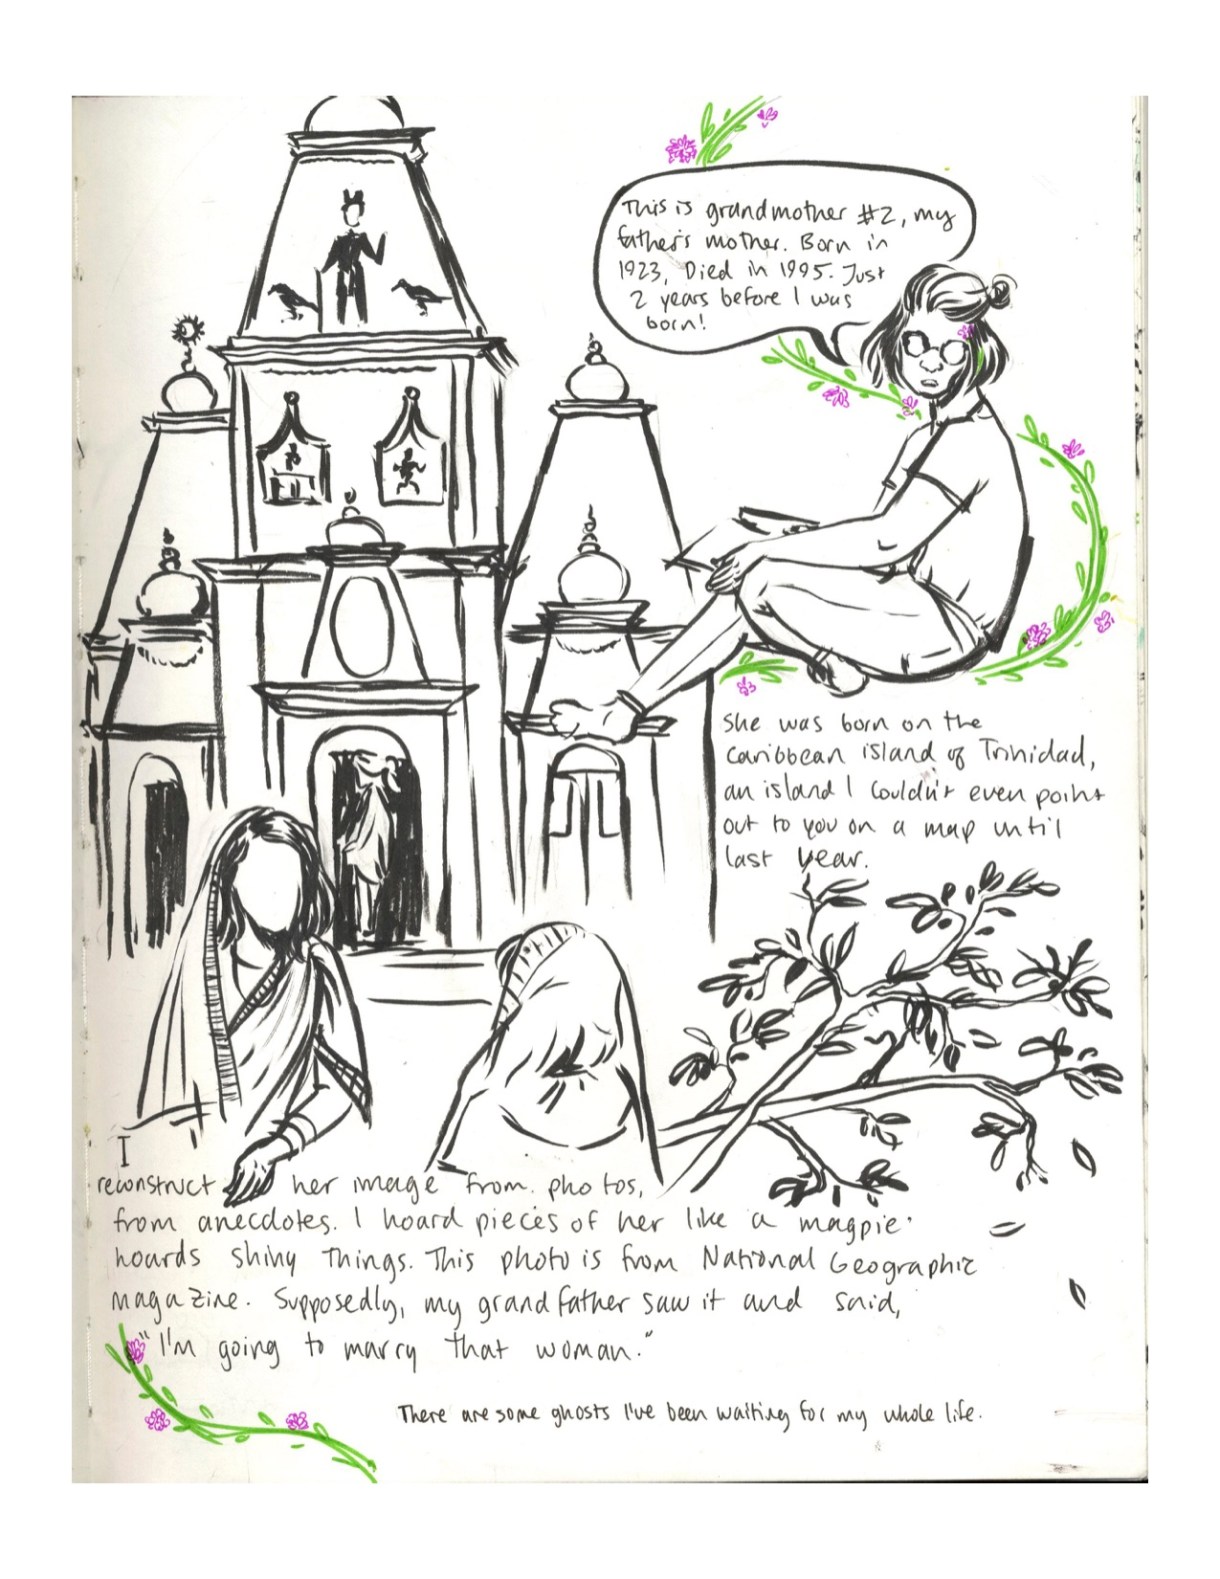 This is grandmother #2, my
father's mother. Born in
1923, Died in 1995. Just
2 years before I was
born!
She was born on the
Caribbean island of Trinidad,
an island I couldn't even point
out to you on a map until
last year.
I
reconstruct her image from photos,
from anecdotes. I hoard pieces of her like a magpie
hoards shiny things. This photo is from National Geographic
magazine. Supposedly, my grandfather saw it and said,
"I'm going to marry that woman."
There are some ghosts I've been waiting for my whole life.